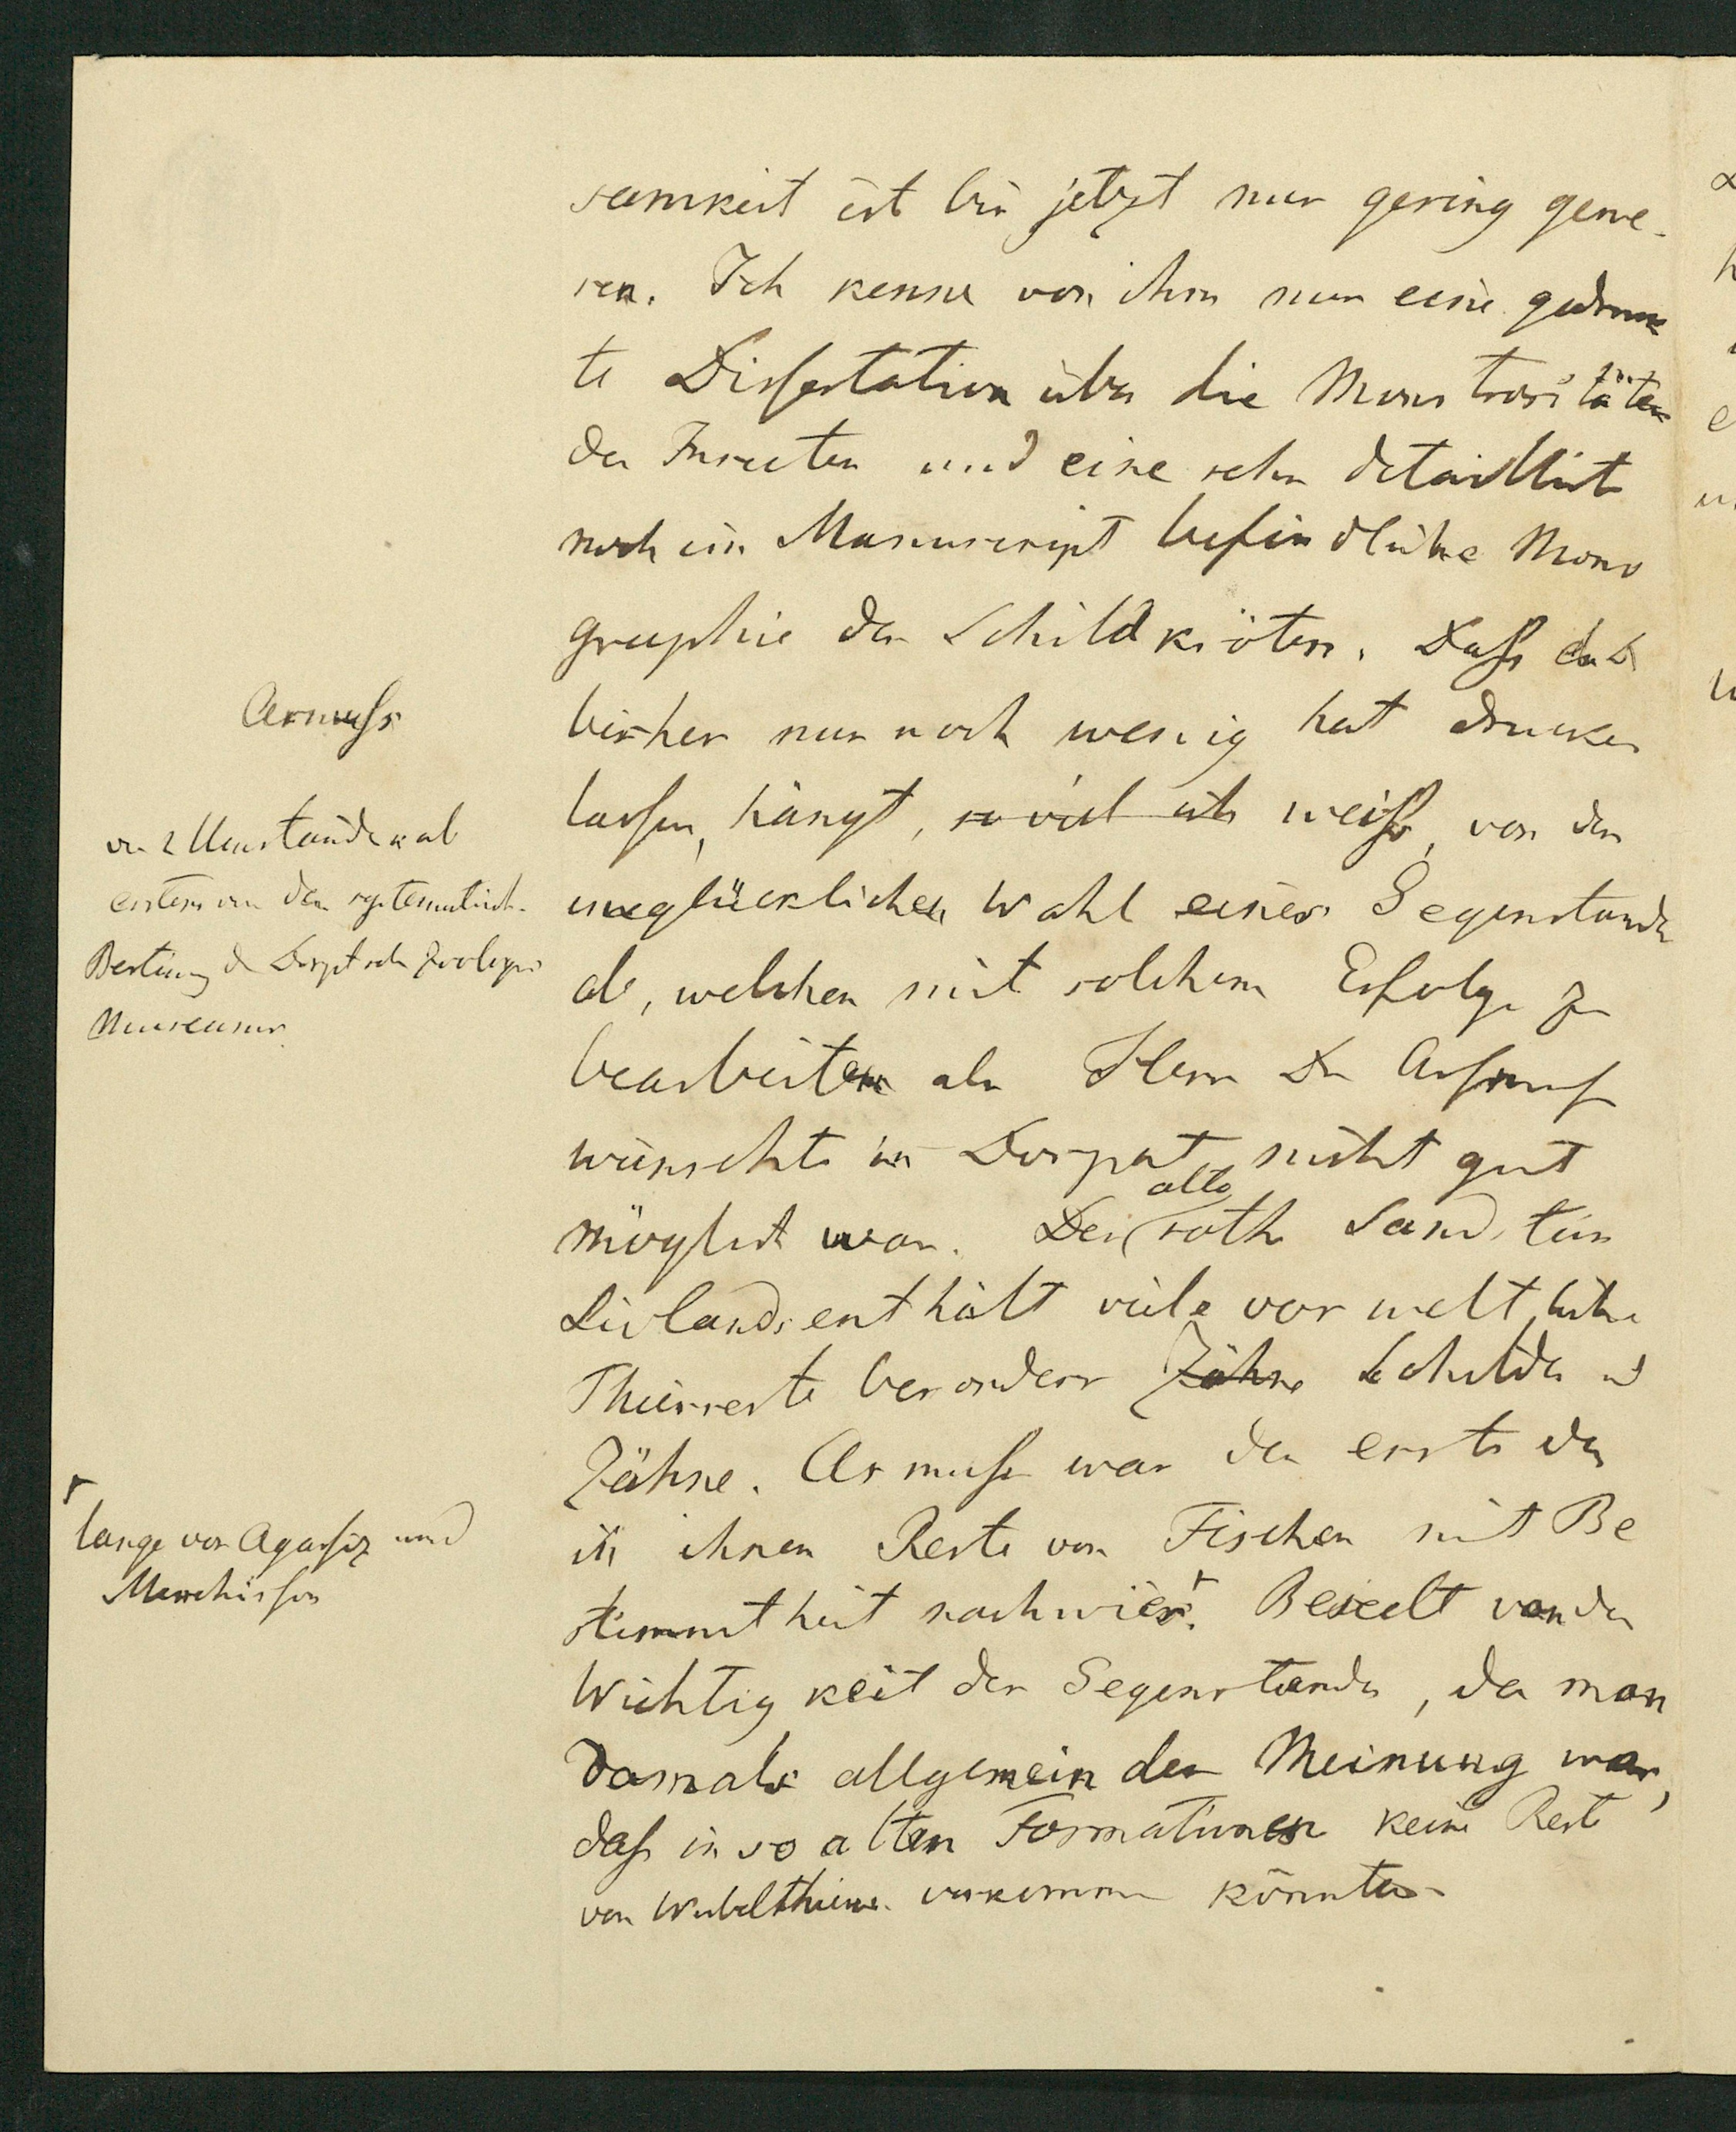 samkeit ist bis jetzt nur gering gewe-
sen. Ich kenne von ihm nur eine gedruck
te Dissertation über die Monstrositäten
der Insecten und eine sehr detaillirte
noch im Manuscript befindliche Mono
graphie der Schildkröten. Daß
Asmuss
bisher nur noch wenig hat drucken
lassen, hängt, soviel ich weiß, von der
von 2 Umständen ab
erstens von der systematisch
unglücklichen Wahl eines Gegenstandes
Dorptschen Zoologi
ab, welchen mit solchem Erfolge zu
Museums
bearbeiten als Herr Dr Asmuß
wünschte in Dorpat nicht gut
möglich war. Der alte rothe Sandstein
Livlands enthält viele vorweltliche
Thierreste besonders Zähne Schilder u
Zähne. Asmuß war der erste der
lange vor Agassiz und
Murchisson
in ihnen Reste von Fischen mit Be
stimmtheit nachwies. Beseelt von der
Wichtigkeit des Gegenstandes, da man
damals allgemein der Meinung war,
daß in so alten Formationen keine Reste
von Wirbelthieren vorkommen könnten